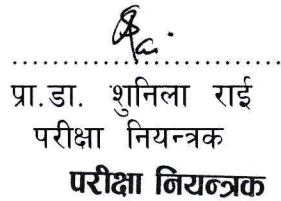 प्रा.डा. शुनिला राई
परीक्षा नियन्त्रक
परीक्षा नियन्त्रक